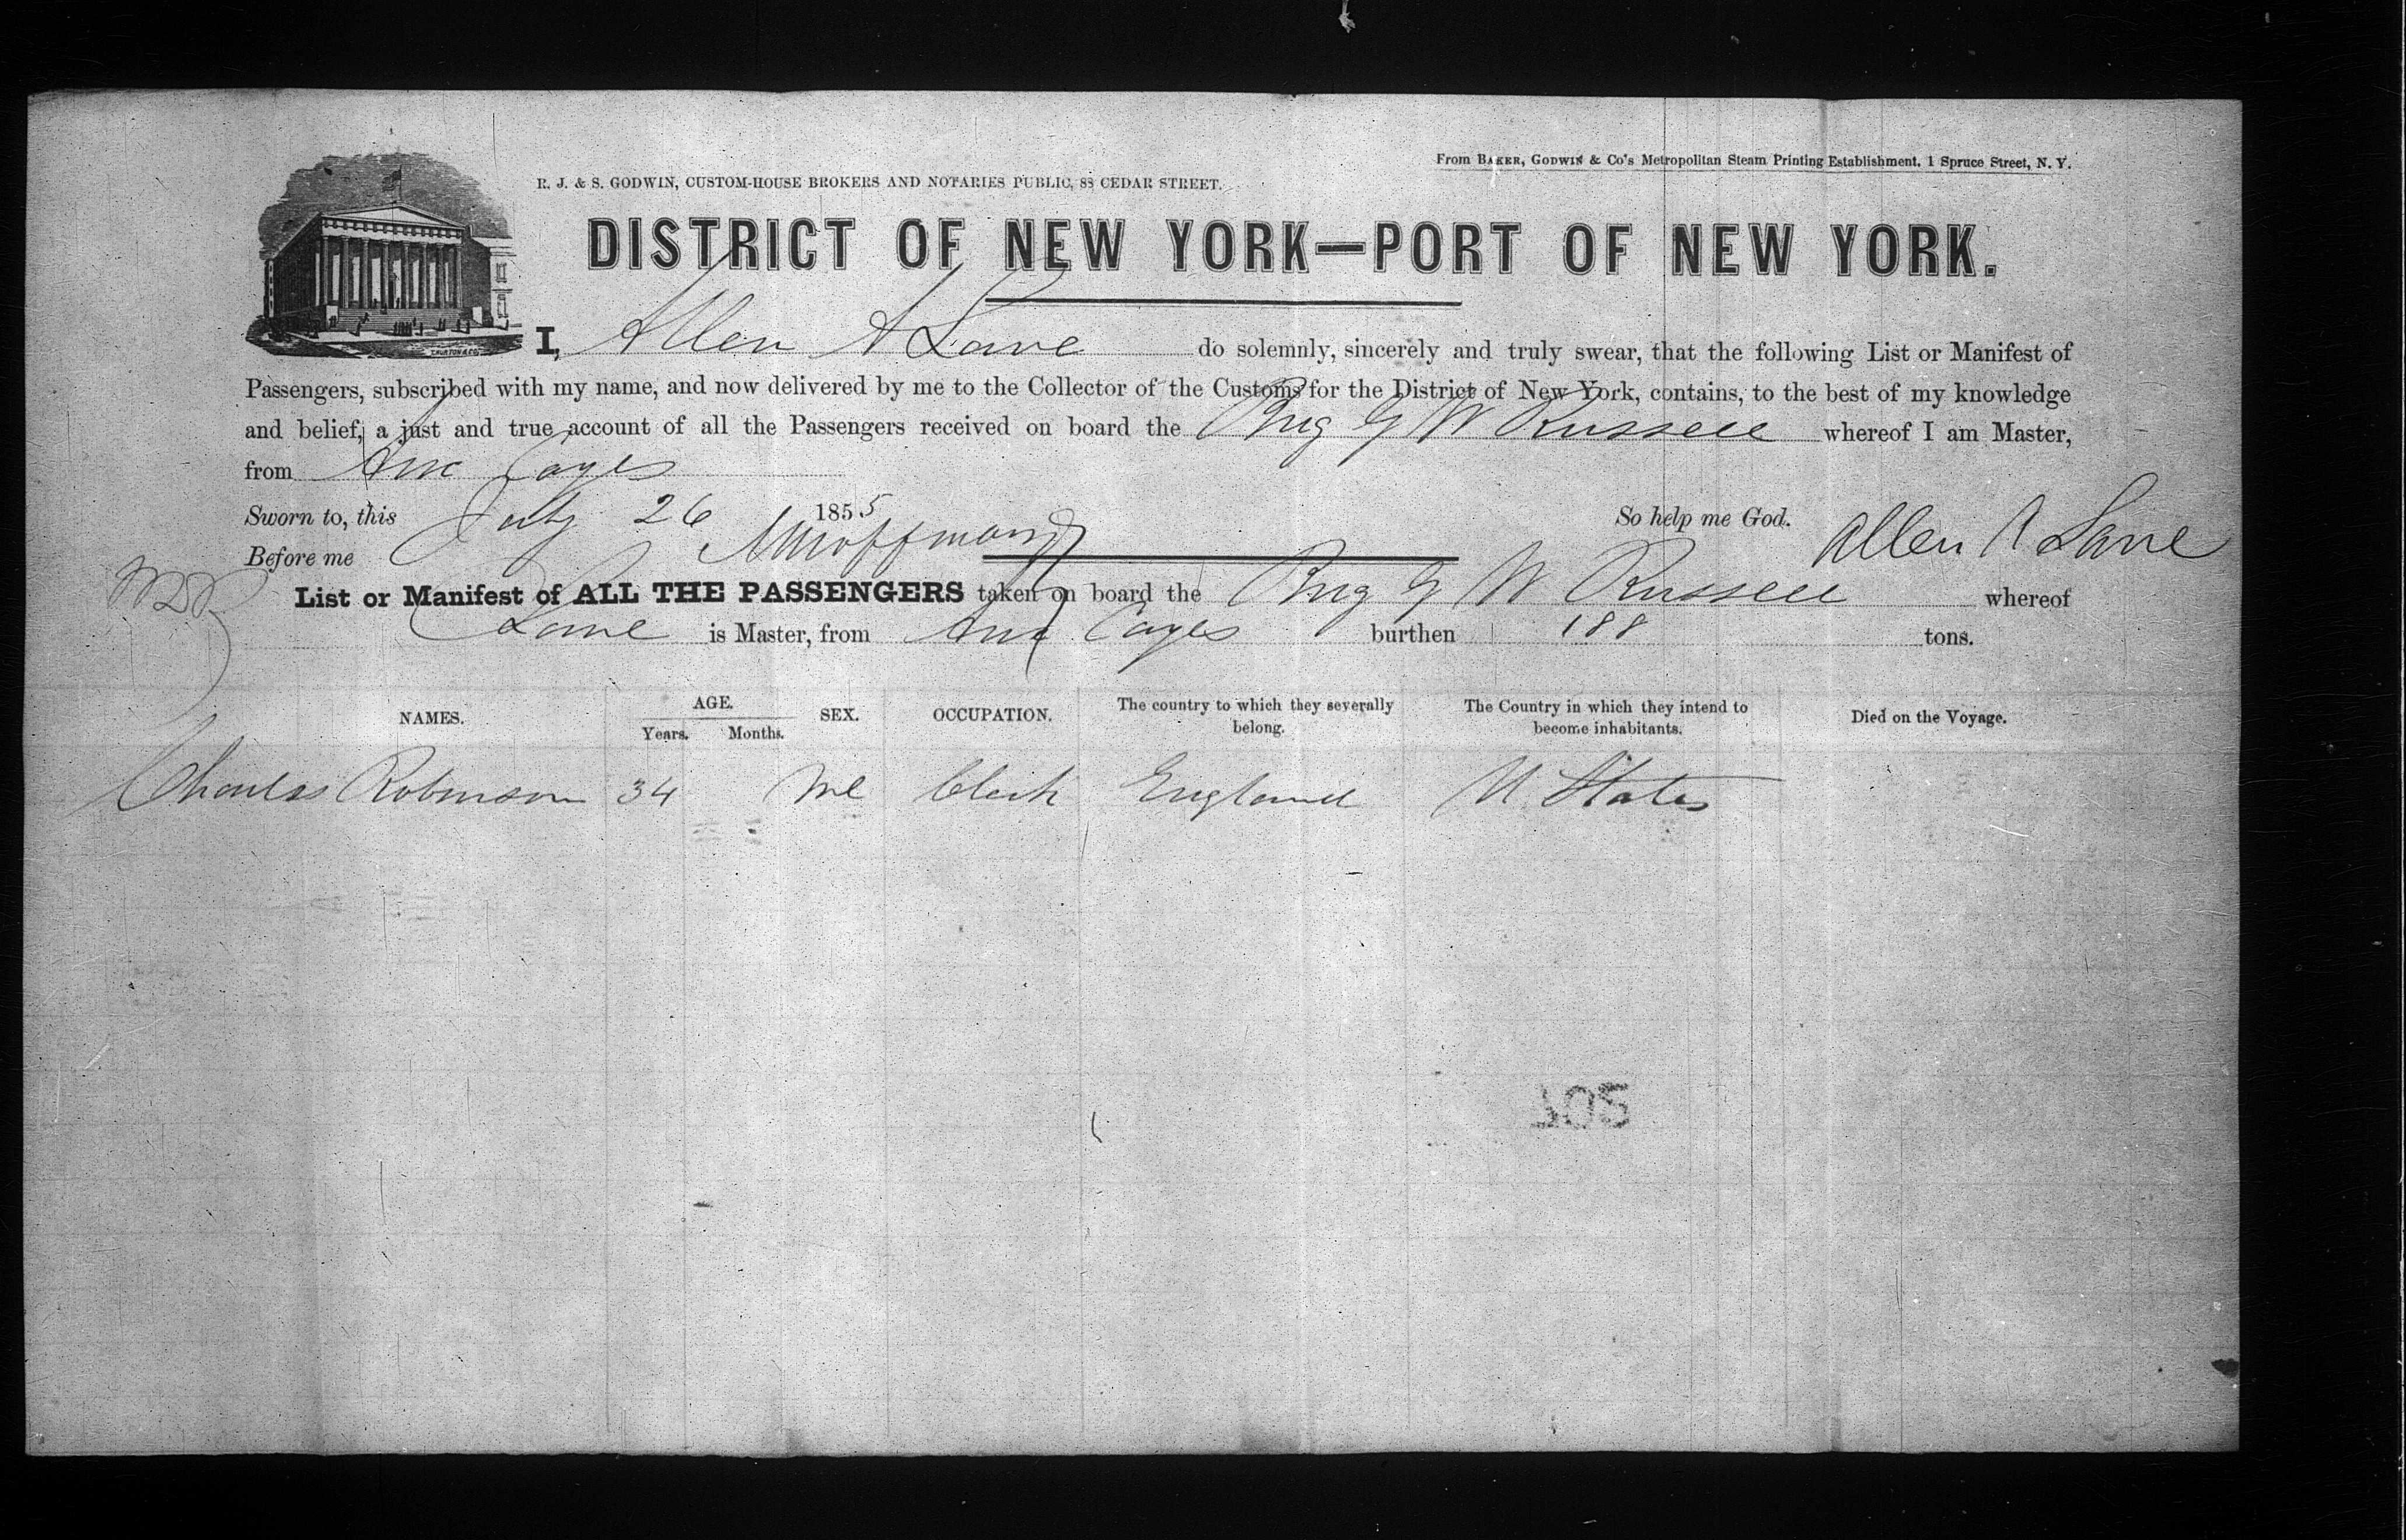 From BAKER, GODWIN & Co's Metropolitan Steam Printing Establishment, 1 Spruce Street, N. Y.
R. J. & S. GODWIN, CUSTOM-HOUSE BROKERS AND NOTARIES PUBLIC, 88 CEDAR STREET.
DISTRICT OF NEW YORK—PORT OF NEW YORK.
I, Allen A Lane do solemnly, sincerely and truly swear, that the following List or Manifest of
Passengers, subscribed with my name, and now delivered by me to the Collector of the Customs for the District of New York, contains, to the best of my knowledge
and belief, a just and true account of all the Passengers received on board the Brig G W Russell whereof I am Master,
from Aux Cayes
Sworn to, this July 26 1855 So help me God. Allen A Lane
Before me
List or Manifest of ALL THE PASSENGERS taken on board the Brig G W Russell whereof
Lane is Master, from Aux Cayes burthen 188 tons.
NAMES. AGE. Years. Months. SEX. OCCUPATION. The country to which they severally belong. The Country in which they intend to become inhabitants. Died on the Voyage.
Charles Robinson 34 Ml Clerk England U. States